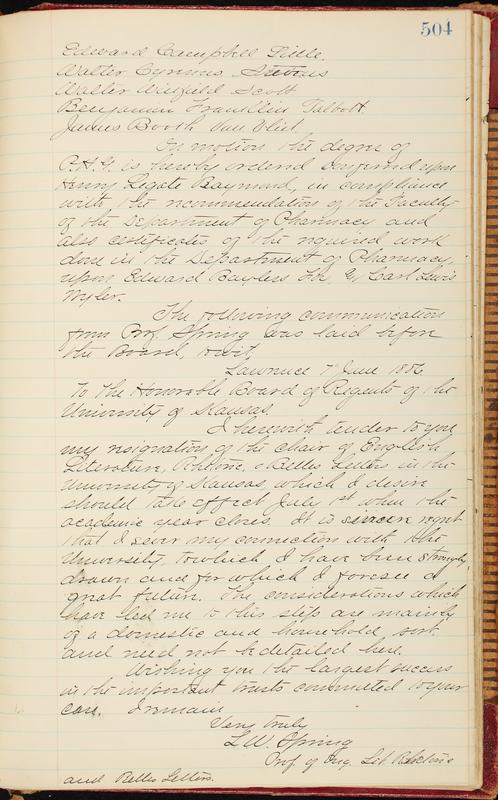 504
Edward Campbell Little.
Walter Cyrenus Stevens
Walter Winfield Scott
Benjamin Franklin Talbott.
Junius Booth Van Vliet.
On motion the degree of
Ph.G. is hereby ordered conferred upon
Henry Legate Raymond, in compliance
with the recommendation of the Faculty
of the Department of Pharmacy and
also certificates of the required work
done in the Department of Pharmacy,
upon Edward Fox, & Carl Lewis
The following communication
from Prof. Spring was laid before
the Board, to wit,
Lawrence 7" June 1886
To the Honorable Board of Regents of the
University of Kansas.
I herewith tender to you
my resignation of the chair of English
Literature, Rhetoric & Belles Letters in the
University of Kansas, which I desire
should take effect July 1st when the
academic year closes. It is sincere regret
that I sever my connection with the
University, to which I have been strongly
drawn and for which I foresee a
great future. The considerations which
have led me to this step are mainly
of a domestic and household sort
and need not be detailed here.
Wishing you the largest success
in the important trusts committed to your
care. I remain
Very truly
L. W. Spring
Prof of Eng. Lit. Rhetoric
and Belles Letters.